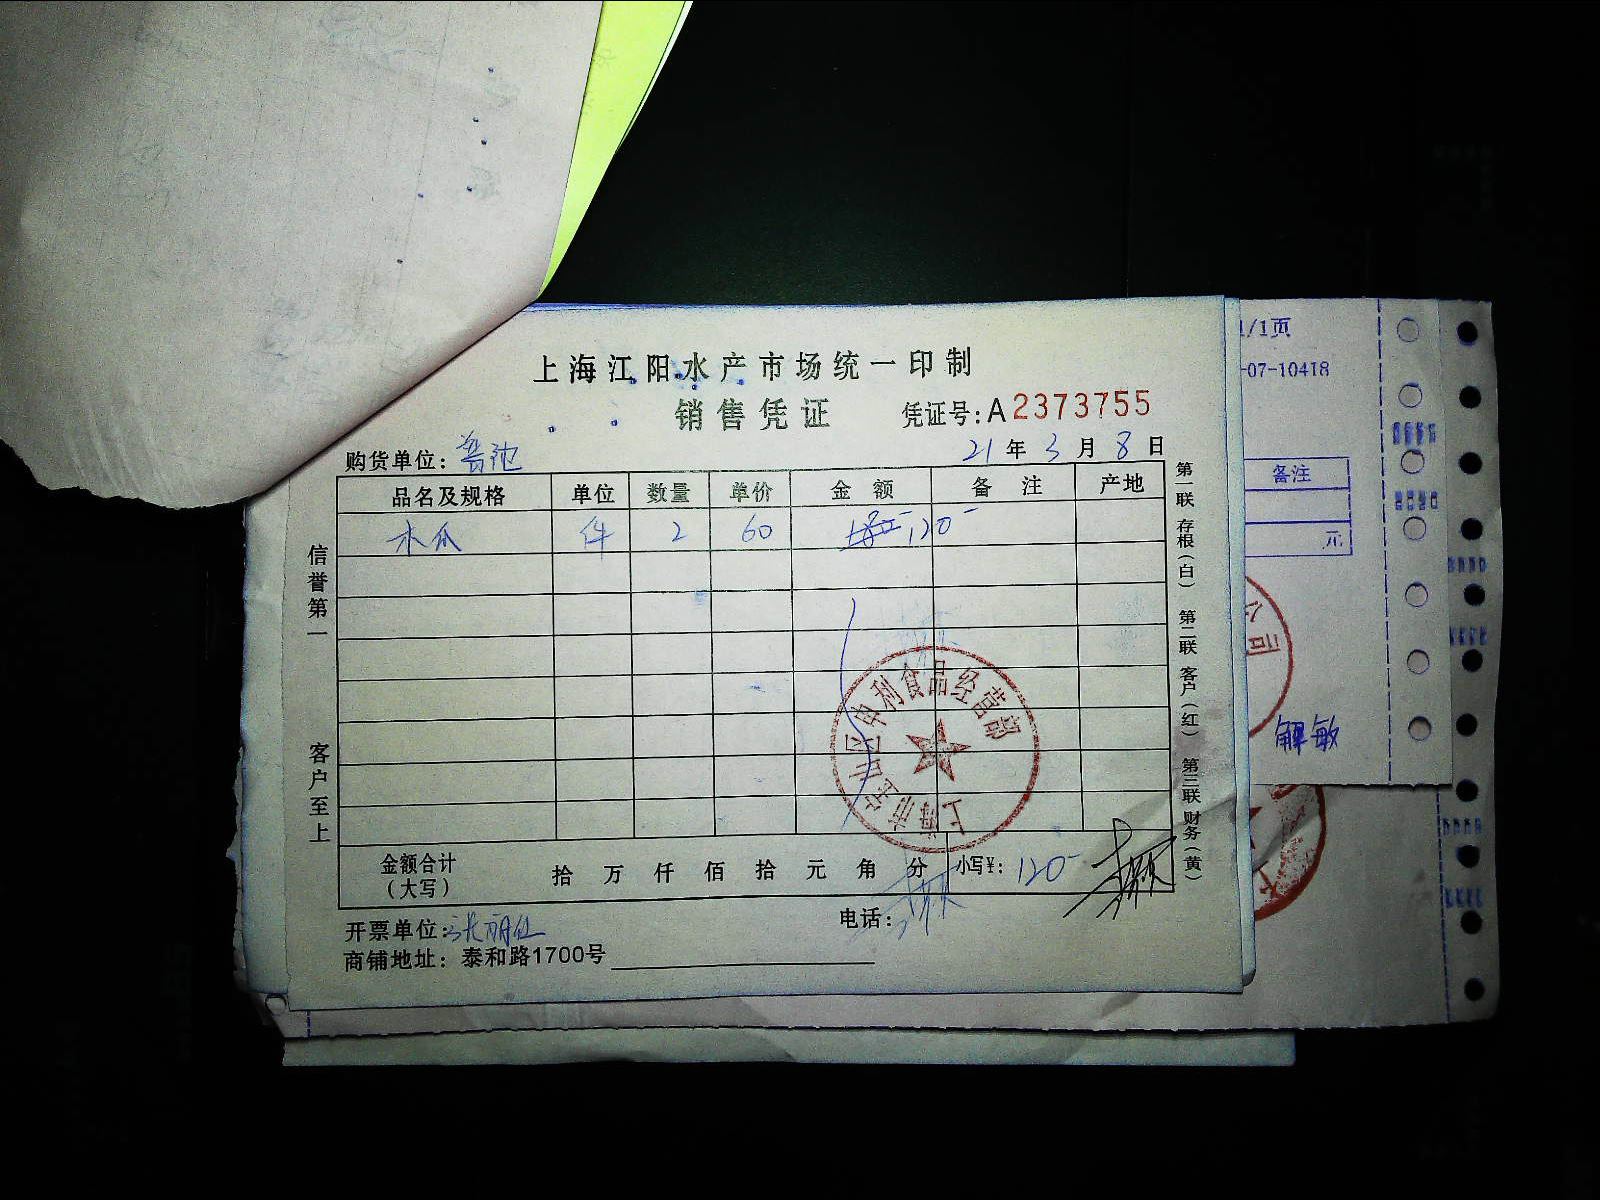 上海江阳水产市场统一印制
销售凭证
凭证号:A2373755
购货单位:
21年3月8日
品名及规格 单位 数量 单价 金额 备注 产地
木瓜 件 2 60 120-
金额合计(大写) 拾 万 仟 佰 拾 元 角 分 小写¥: 120-
开票单位:
电话:
商铺地址: 泰和路1700号
信誉第一 客户至上
第一联 存根(白) 第二联 客户(红) 第三联 财务(黄)
上海市宝山区申利食品经营部
1/1页
-07-10418
备注
元
公司
解敏